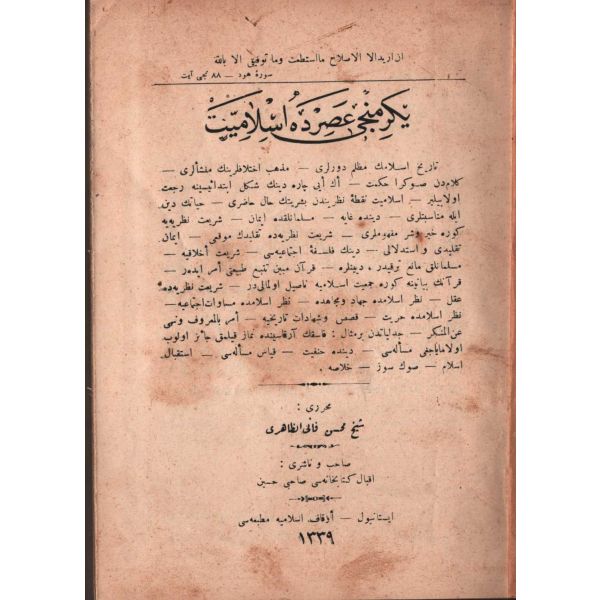 ان ارید الا الاصلاح مااستطعت وما توفیقی الا بالله
سورۀ هود — ۸۸ نجی آیت
یکرمنجی عصرده اسلامیت
تاریخ اسلامك مظلم دورلری — مذهب اختلافلرینك منشألری —
كلام‌دن صوكرا حكمت — اك أیی چاره دینك شكل ابتدائیسینه رجعت
اولابیلیر — اسلامیت نقطۀ نظریندن بشریتك حال حاضری — حیاتك دین
ایله مناسبتلری — دینده غایه — مسلمانلقده ایمان — شریعت نظریه‌یه
كوره خیر وشر مفهوملری — شریعت نظریه‌ده تقلیدك موقعی — ایمان
تقلیدی و استدلالی — دینك فلسفۀ اجتماعیه‌سی — شریعت أخلاقیه —
مسلمانلق مانع ترقیدر، دینلره — قرآن مبین تتبع طبیعتی أمر ایده‌ر —
قرآنك بیاننه كوره جمعیت اسلامیه ناصیل اولمالی‌در — شریعت نظریه‌ده
عقل — نظر اسلامده جهاد ومجاهده — نظر اسلامده مساوات اجتماعیه —
نظر اسلامده حریت — قصص وشهادات تاریخیه — أمر بالمعروف ونهی
عن‌المنكر — جدلیاتدن برمثال : فاسقك آرقاسینده نماز قیلمق جائز اولوب
اولامایاجغی مسأله‌سی — دینده حنفیت — قیاس مسأله‌سی — استقبال
اسلام — صوك سوز — خلاصه .
محرری :
شیخ محسن فانی الظاهری
صاحب و ناشری :
اقبال كتابخانه‌سی صاحبی حسین
ایستانبول — أوقاف اسلامیه مطبعه‌سی
۱۳۳۹